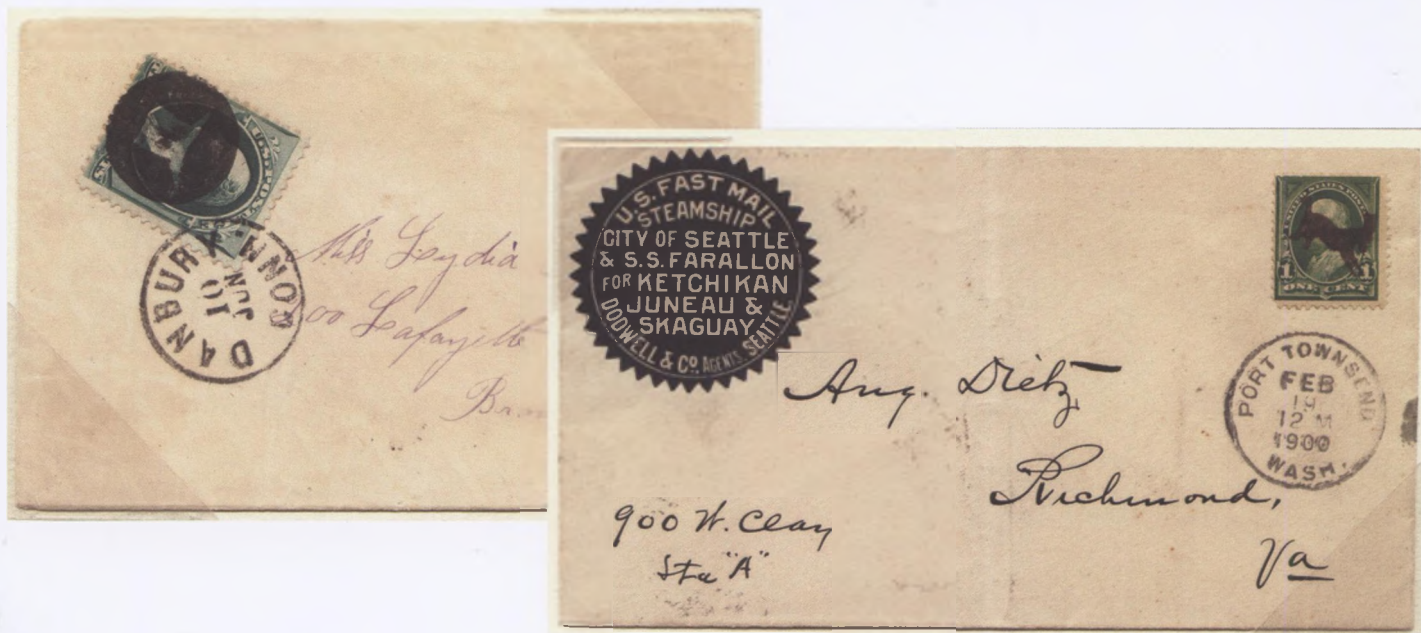 DANBURY CONN.
JUN
10
Miss Lydia
00 Lafayette
U.S. FAST MAIL
STEAMSHIP
CITY OF SEATTLE
& S.S. FARALLON
FOR KETCHIKAN
JUNEAU &
SKAGUAY
DODWELL & CO. AGENTS, SEATTLE.
UNITED STATES POSTAGE
1 1
ONE CENT
PORT TOWNSEND
FEB
19
12 M
1900
WASH.
Aug. Dietz
Richmond,
Va
900 W. Clay
Sta "A"